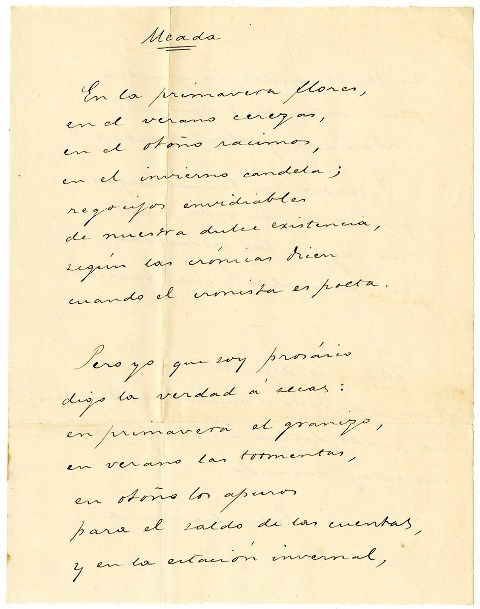 Meada
En la primavera flores,
en el verano cerezas,
en el otoño racimos,
en el invierno candela;
regocijos envidiables
de nuestra dulce existencia,
según las crónicas dicen
cuando el cronista es poeta.
Pero yo que soy prosáico
digo la verdad á secas:
en primavera el granizo,
en verano las tormentas,
en otoño los apuros
para el saldo de las cuentas,
y en la estación invernal,